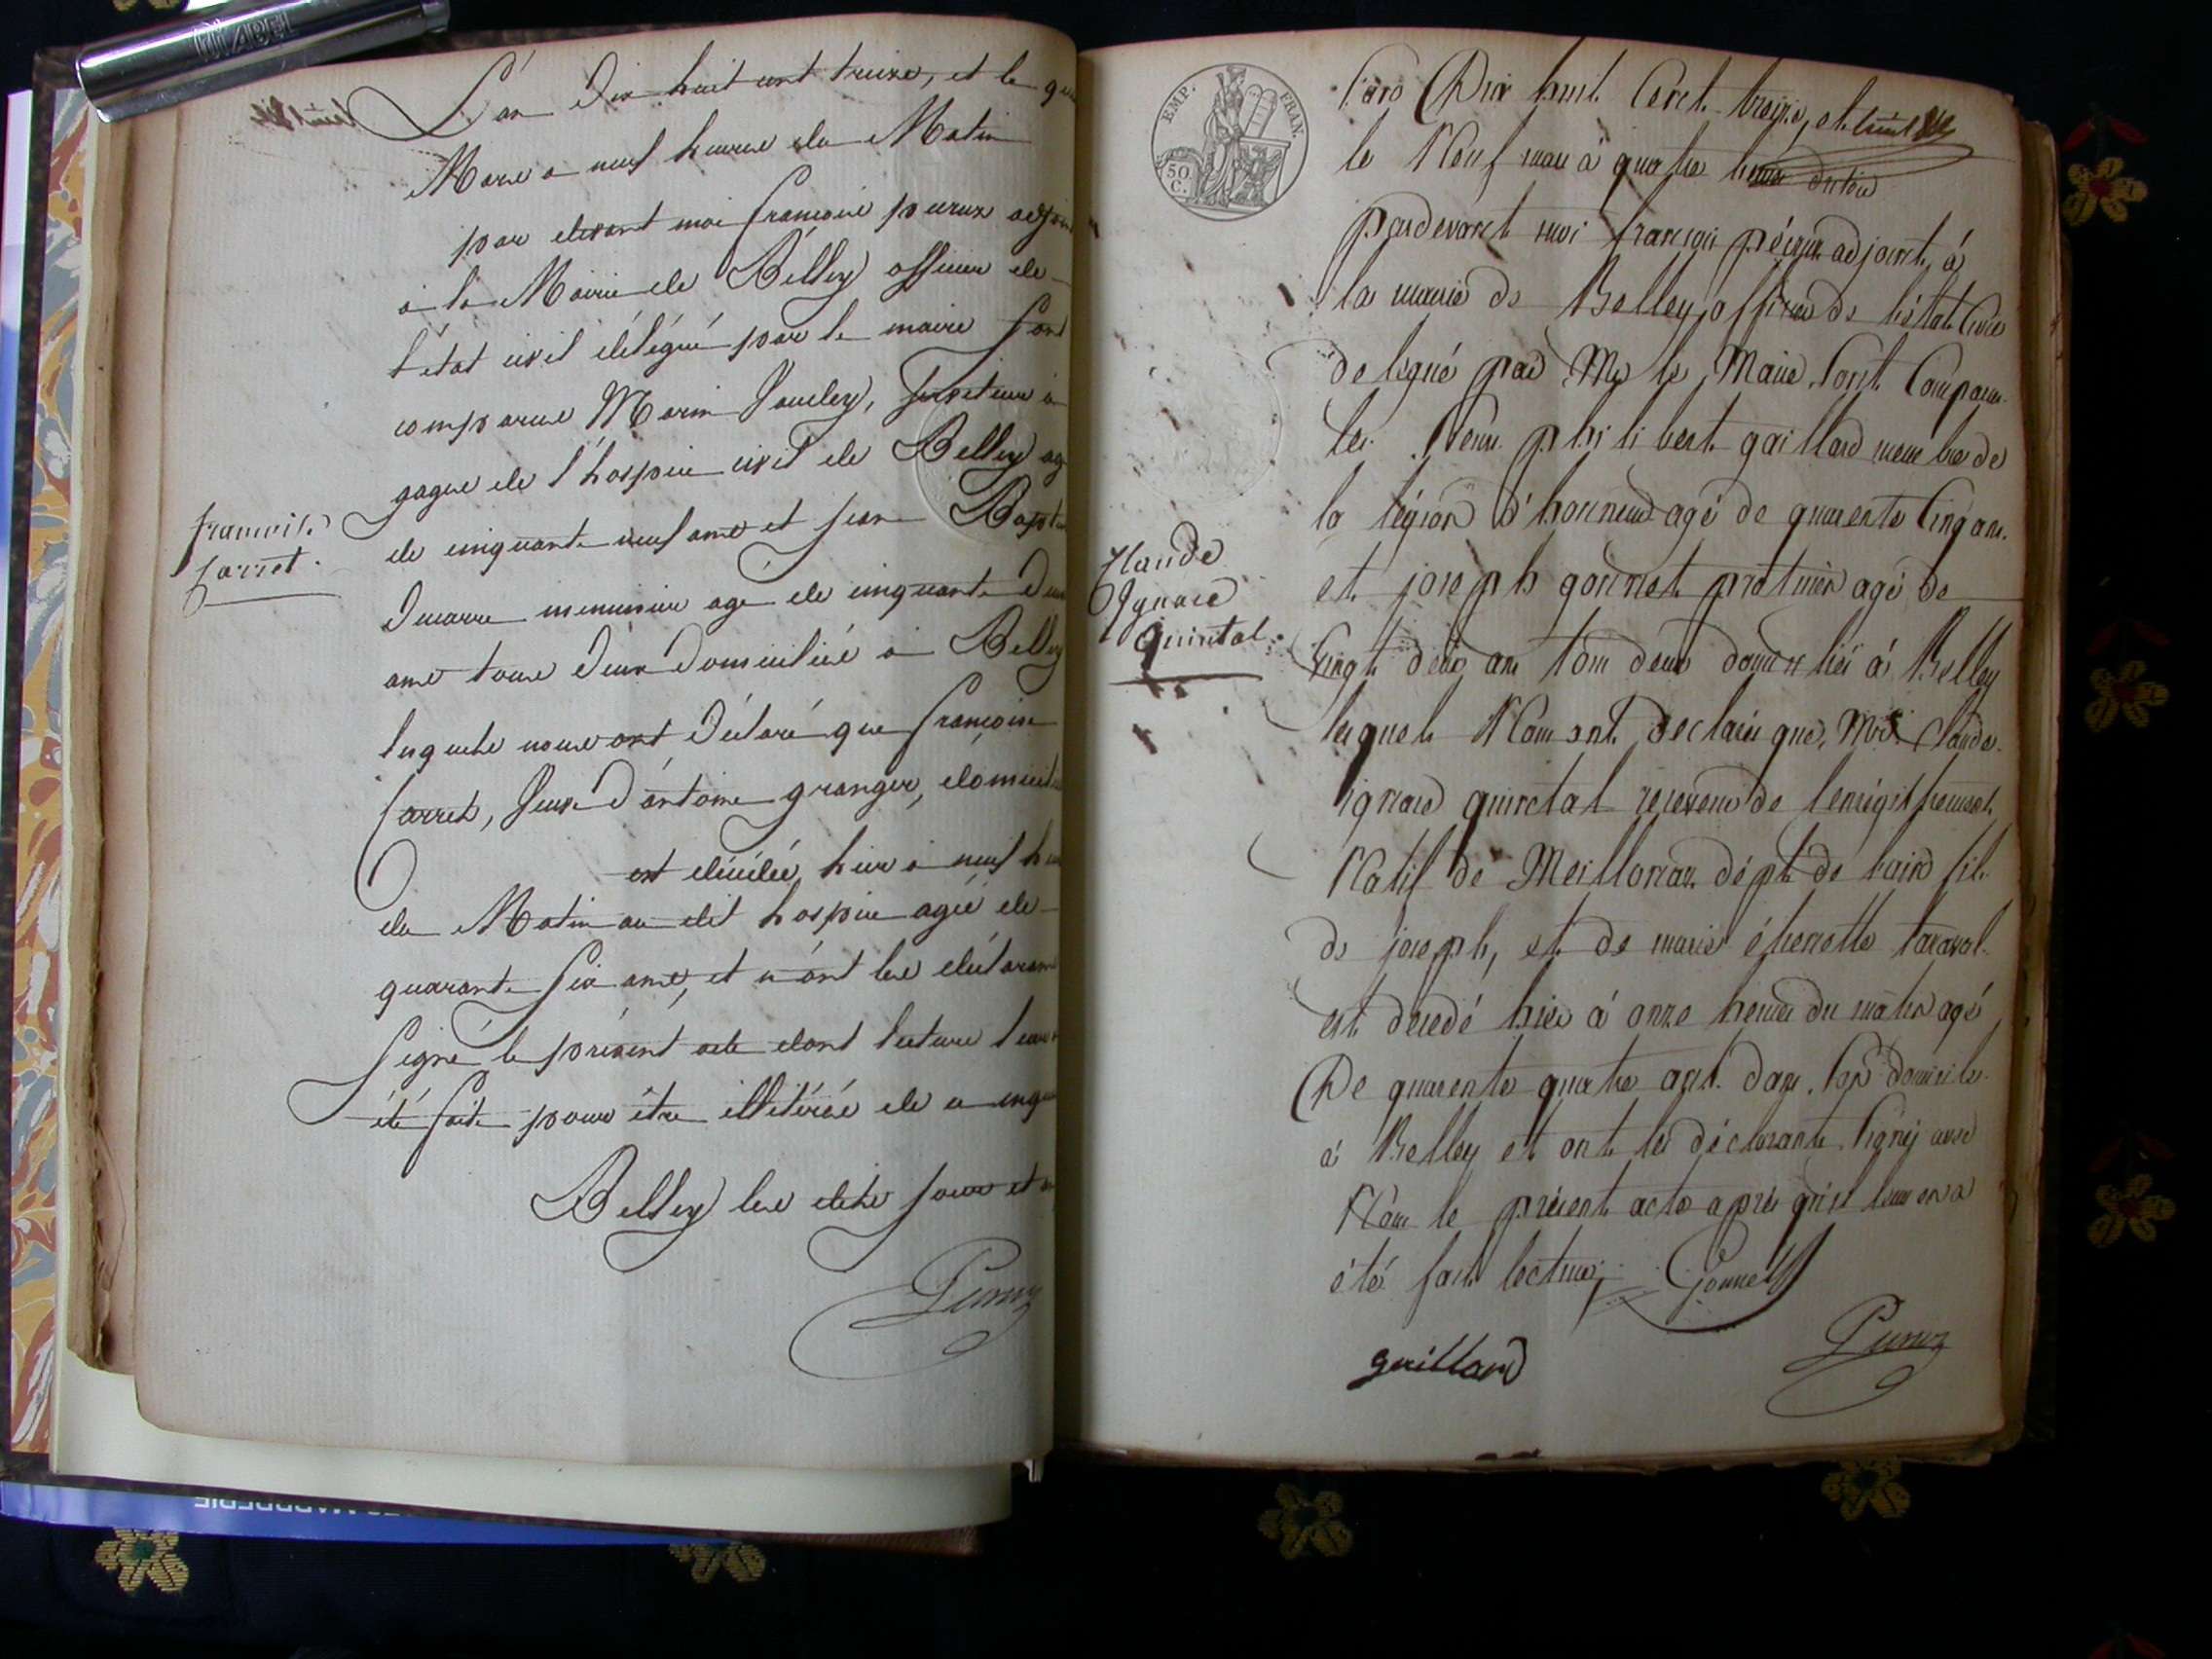 L'an Dix huit cent treize, et le
Mars a neuf heures du Matin
par devant moi francois peeruz adjoint
a la Mairie de Belley officier de
l'état civil délégué par le maire sont
comparus Marin Jouley, Serviteur a
gages de l'hospice civil de Belley agé
de cinquante neuf ans et jean Baptiste
Ducarre menuisier agé de cinquante Deux
ans tous Deux Domiciliés a Belley
lesquels nous ont Déclaré que francoise
Carret, Veuve D'antoine granger, domiciliée
est décédée hier a neuf heures
du Matin au dit hospice agée de
quarante six ans, et n'ont les déclarants
signé le présent acte dont lecture leur a
été faite pour être illitérés de ce enquis
Belley les dits jour et an
Peruz
francoise
Carret.
EMP. FRAN.
50 C.
L'an Dix huit Cent treize, et
le Neuf mars à quatre heures du soir
pardevant moi françois péeruz adjoint, à
la mairie de Belley, officier de l'état Civil
delegué par Mr le Maire, sont Comparus
les Sieurs philibert gaillard membre de
la légion d'honneur agé de quarente Cinq ans
et joseph gonnet praticien agé de
Vingt deux ans tous deux domiciliés à Belley
lesquels Nous ont declarés que, Mr Claude
ignace quinctal receveur de l'enregistrement
Natif de Meillonaz dépt. de l'ain fils
de joseph, et de marie étienette taraval
est decedé hier à onze heures du matin agé
De quarente quatre ans dans son domicile
à Belley et ont les déclarants signés avec
Nous le présent acte après qu'il leur en a
été fait lecture,
Gonnet
gaillard
Peruz
Claude
Ignace
Quintal